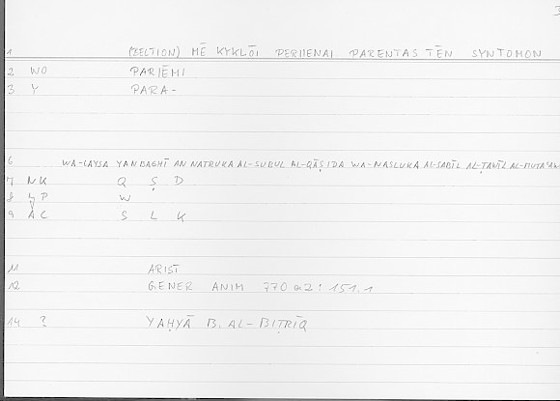 1 (BELTION) MĒ KYKLŌI PERIIENAI PARENTAS TĒN SYNTOMON
2 WO PARIĒMI
3 Y PARA-
6 WA-LAYSA YANBAGHĪ AN NATRUKA AL-SUBUL AL-QĀṢIDA WA-NASLUKA AL-SABĪL AL-ṬAWĪL
7 NK Q Ṣ D
8 W
9 AC S L K
11 ARIST
12 GENER ANIM 770 a2 : 151.1
14 ? YAḤYĀ B. AL-BIṬRĪQ